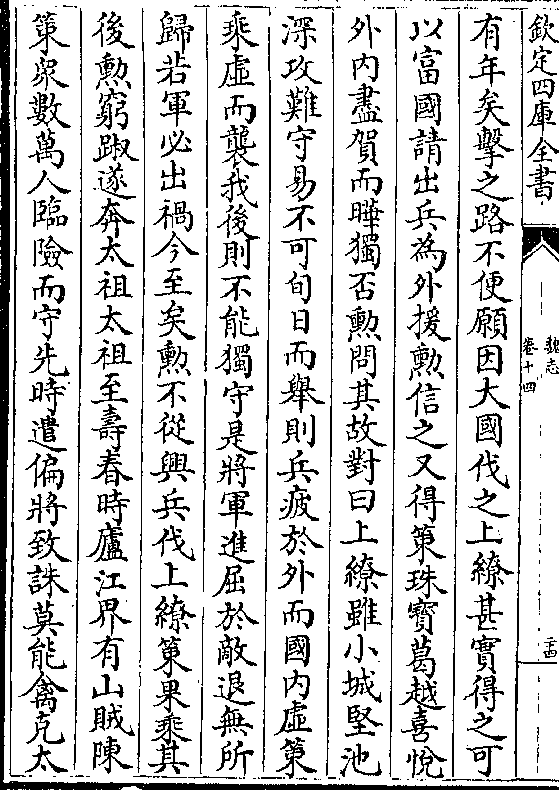 欽定四庫全書
魏志
卷十四
二十四
有年矣擊之路不便願因大國伐之上繚甚實得之可
以富國請出兵為外援勲信之又得策珠寶葛越喜悅
外内盡賀而曄獨否勲問其故對曰上繚雖小城堅池
深攻難守易不可旬日而舉則兵疲於外而國内虛策
乘虛而襲我後則不能獨守是將軍進屈於敵退無所
歸若軍必出禍今至矣勲不從興兵伐上繚策果乘其
後勲窮踧遂奔太祖太祖至壽春時廬江界有山賊陳
策衆數萬人臨險而守先時遣偏將致誅莫能禽克太